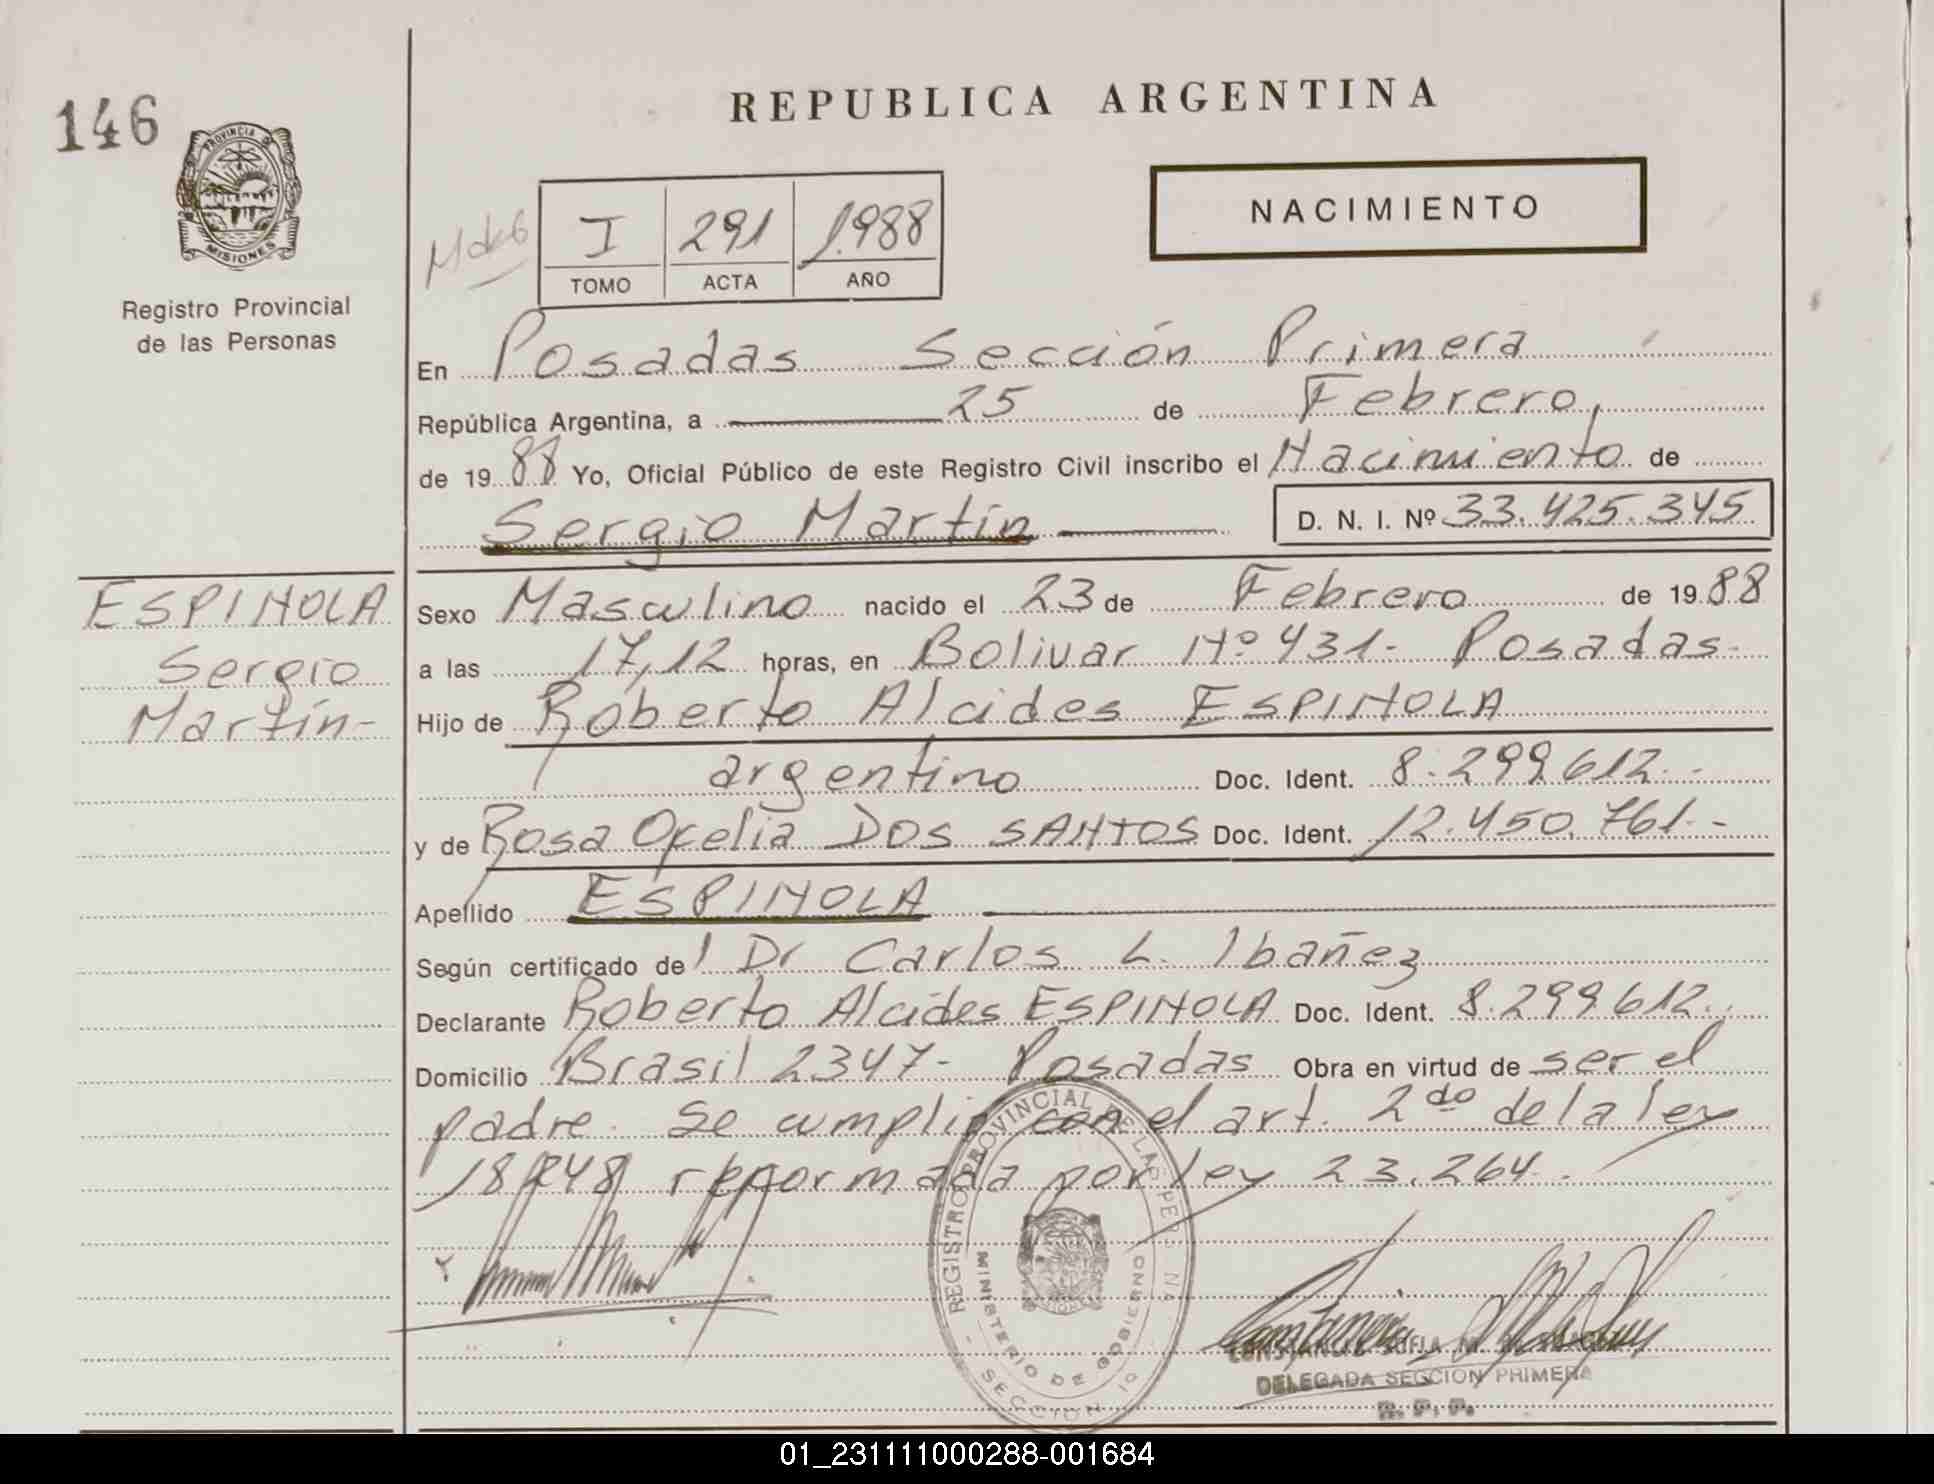 146
PROVINCIA DE
MISIONES
Registro Provincial
de las Personas
REPUBLICA ARGENTINA
NACIMIENTO
I 291 1.988
TOMO ACTA AÑO
En Posadas Sección Primera
República Argentina, a 25 de Febrero,
de 1988 Yo, Oficial Público de este Registro Civil inscribo el Nacimiento de
Sergio Martín D. N. I. Nº 33.425.345
ESPINOLA
Sergio
Martín-
Sexo Masculino nacido el 23 de Febrero de 1988
a las 17,12 horas, en Bolivar Nº 431- Posadas-
Hijo de Roberto Alcides ESPINOLA
argentino Doc. Ident. 8.299.612.-
y de Rosa Ofelia DOS SANTOS Doc. Ident. 12.450.761.-
Apellido ESPINOLA
Según certificado de l Dr Carlos L. Ibañez
Declarante Roberto Alcides ESPINOLA Doc. Ident. 8.299.612.-
Domicilio Brasil 2347- Posadas Obra en virtud de ser el
padre. Se cumplió con el art. 2do de la ley
18.248 reformada por ley 23.264.-
REGISTRO PROVINCIAL DE LAS PERSONAS
MINISTERIO DE GOBIERNO
SECCION 1º
DELEGADA SECCION PRIMERA
R. P. P.
01_231111000288-001684